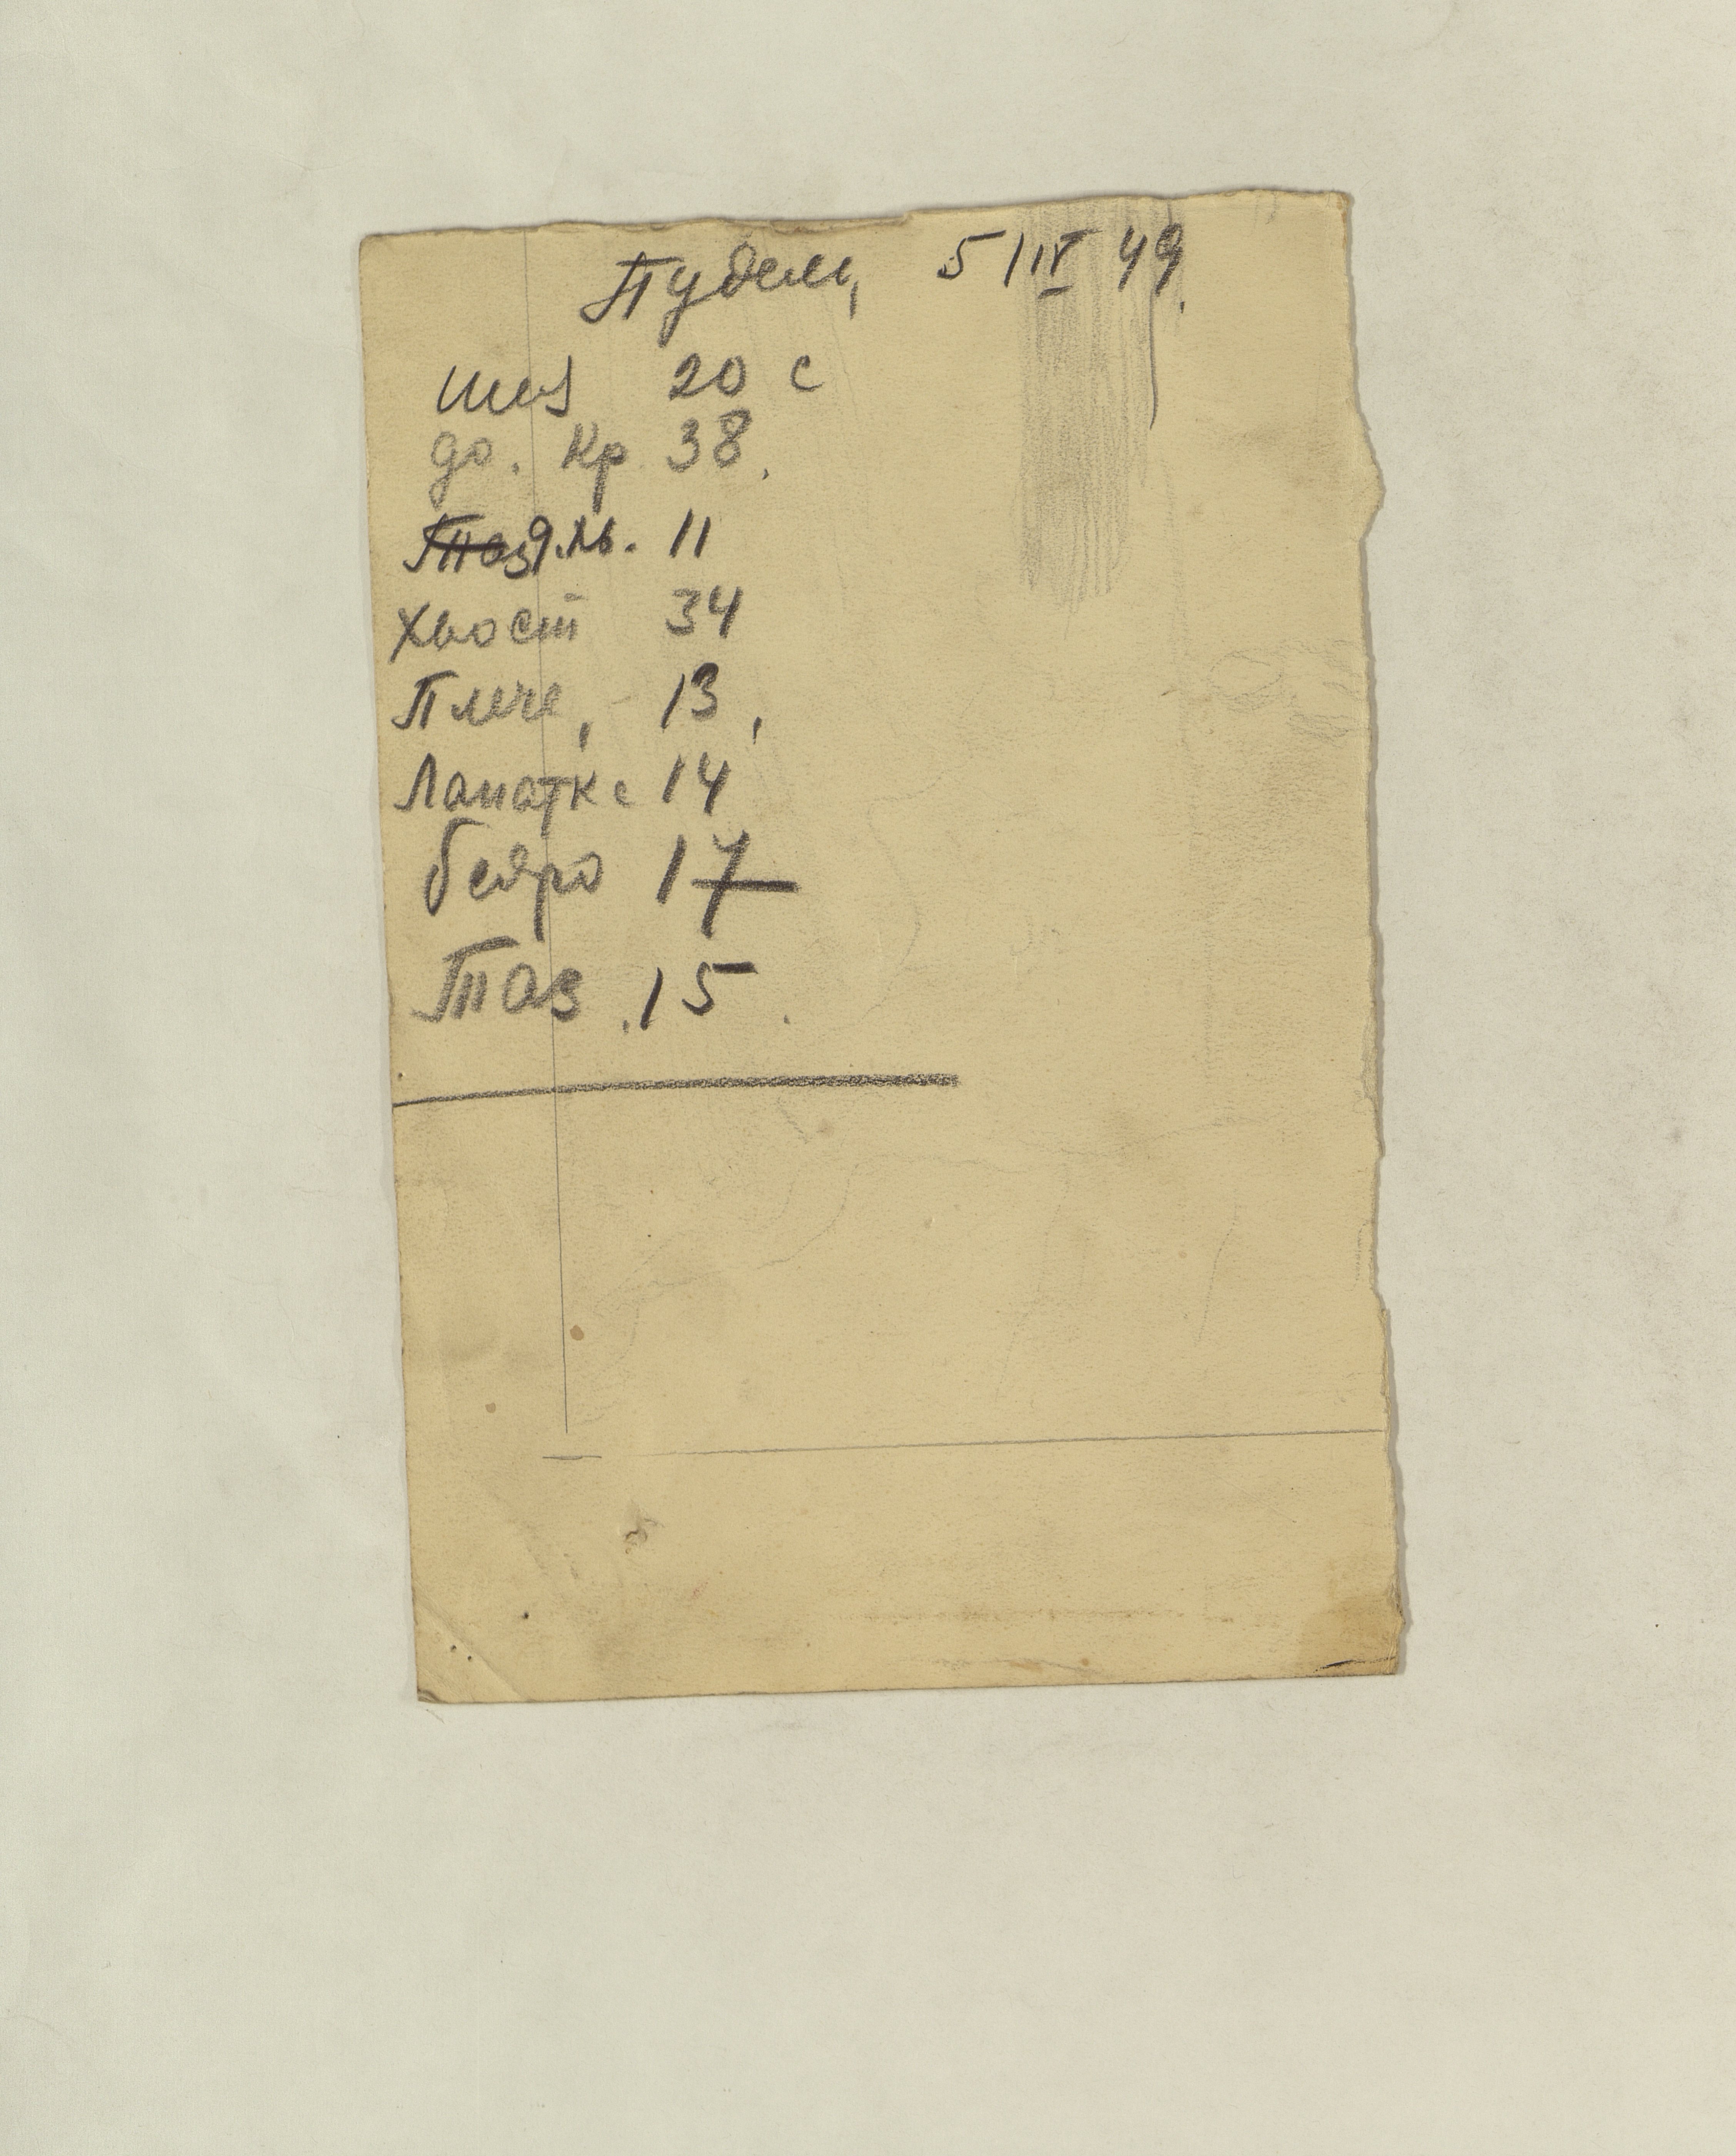 Пудель, 5/IV 49.
шея 20 с
до. Кр. 38.
Таз д.хв. 11
хвост 34
Плече, - 13,
Лапатка 14
бедро 17
Таз 15.